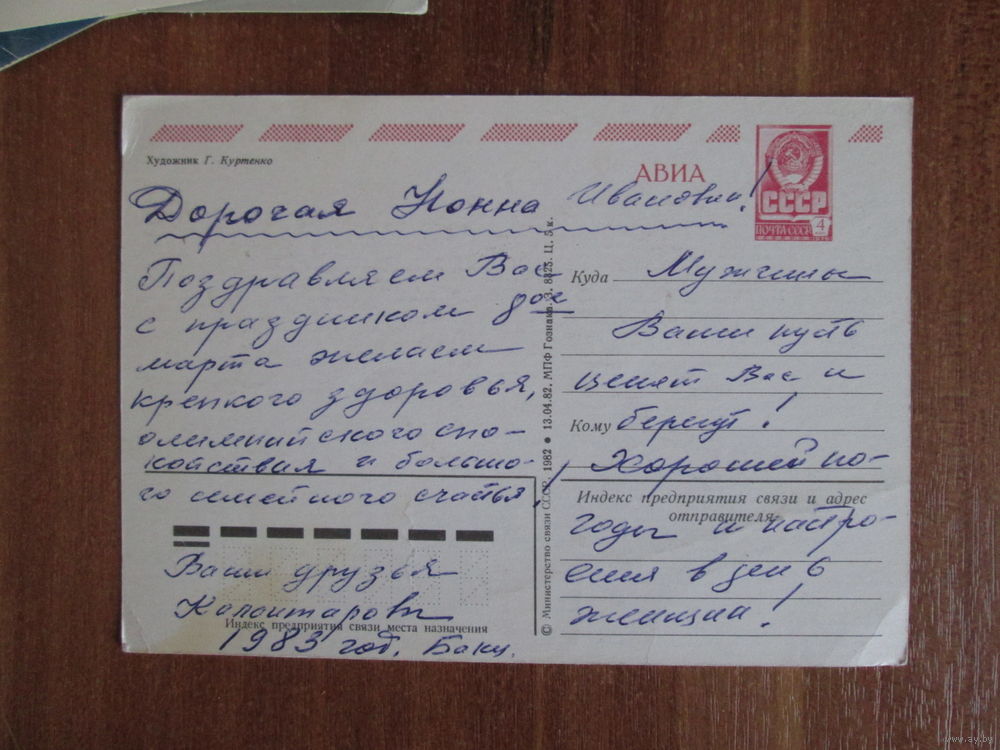 Художник Г. Куртенко
АВИА
СССР
ПОЧТА СССР 4
Дорогая Нонна Ивановна!
Поздравляем Вас
с праздником 8ое
марта желаем
крепкого здоровья,
олимпийского спо-
койствия и большо-
го семейного счастья!
Ваши друзья
Калантаровы
1983 год. Баку.
Индекс предприятия связи места назначения
© Министерство связи СССР. 1982 • 13.04.82. МПФ Гознака. З. 8825. Ц. 5 к.
Куда Мужчины
Ваши пусть
ценят Вас и
Кому берегут!
Хорошей по-
Индекс предприятия связи и адрес
отправителя
годы и настро-
ения в день
женщин!
www.ay.by